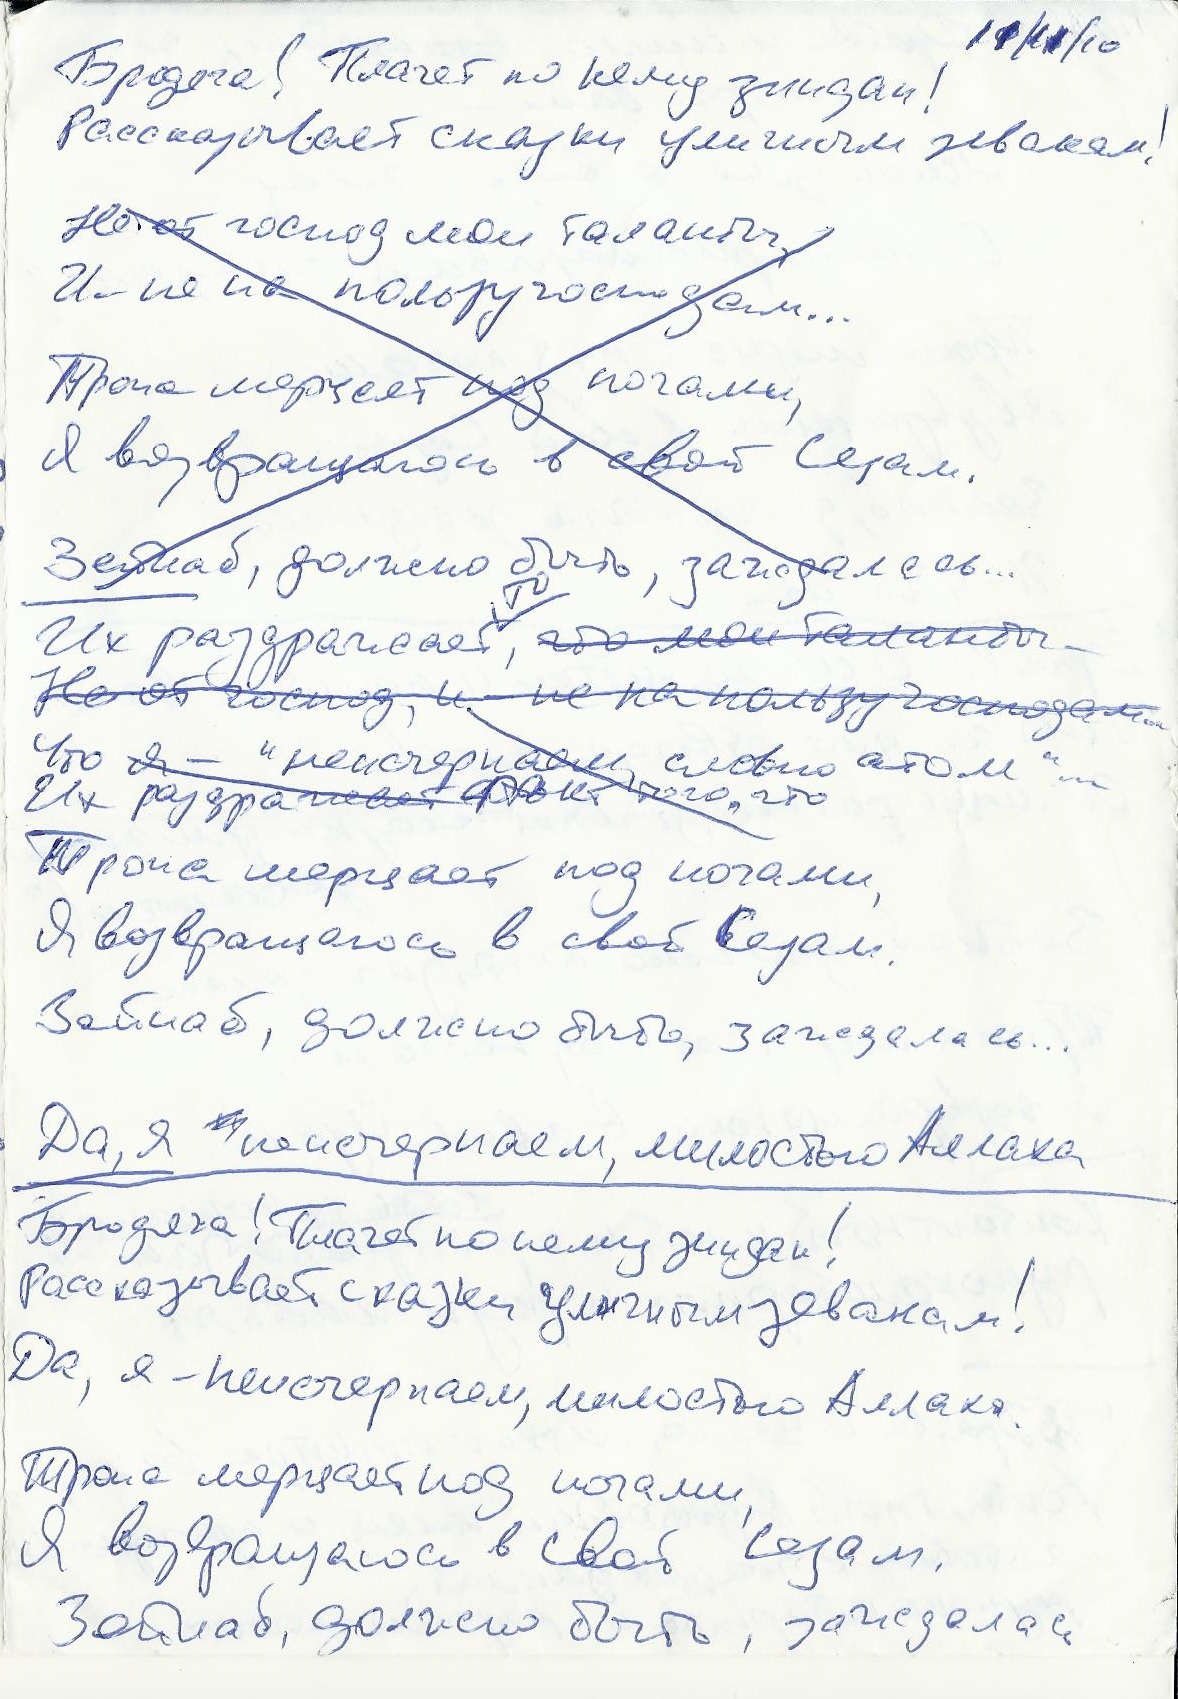 11/11/10
Бродяга! Плачет по нему зиндан!
Рассказывает сказки уличным зевакам!
Не от господ мои таланты,
И – не на пользу господам...
Тропа мерцает под ногами,
Я возвращаюсь в свой Сезам.
Зейнаб, должно быть, заждалась...
то
Их раздражает, что мои таланты –
Не от господ, и – не на пользу господам...
Что я – "неисчерпаем, словно атом"...
Их раздражает факт того, что
Тропа мерцает под ногами,
Я возвращаюсь в свой Сезам.
Зейнаб, должно быть, заждалась...
Да, я неисчерпаем, милостью Аллаха
Бродяга! Плачет по нему зиндан!
Рассказывает сказки уличным зевакам!
Да, я – неисчерпаем, милостью Аллаха.
Тропа мерцает под ногами,
Я возвращаюсь в свой Сезам.
Зейнаб, должно быть, заждалась